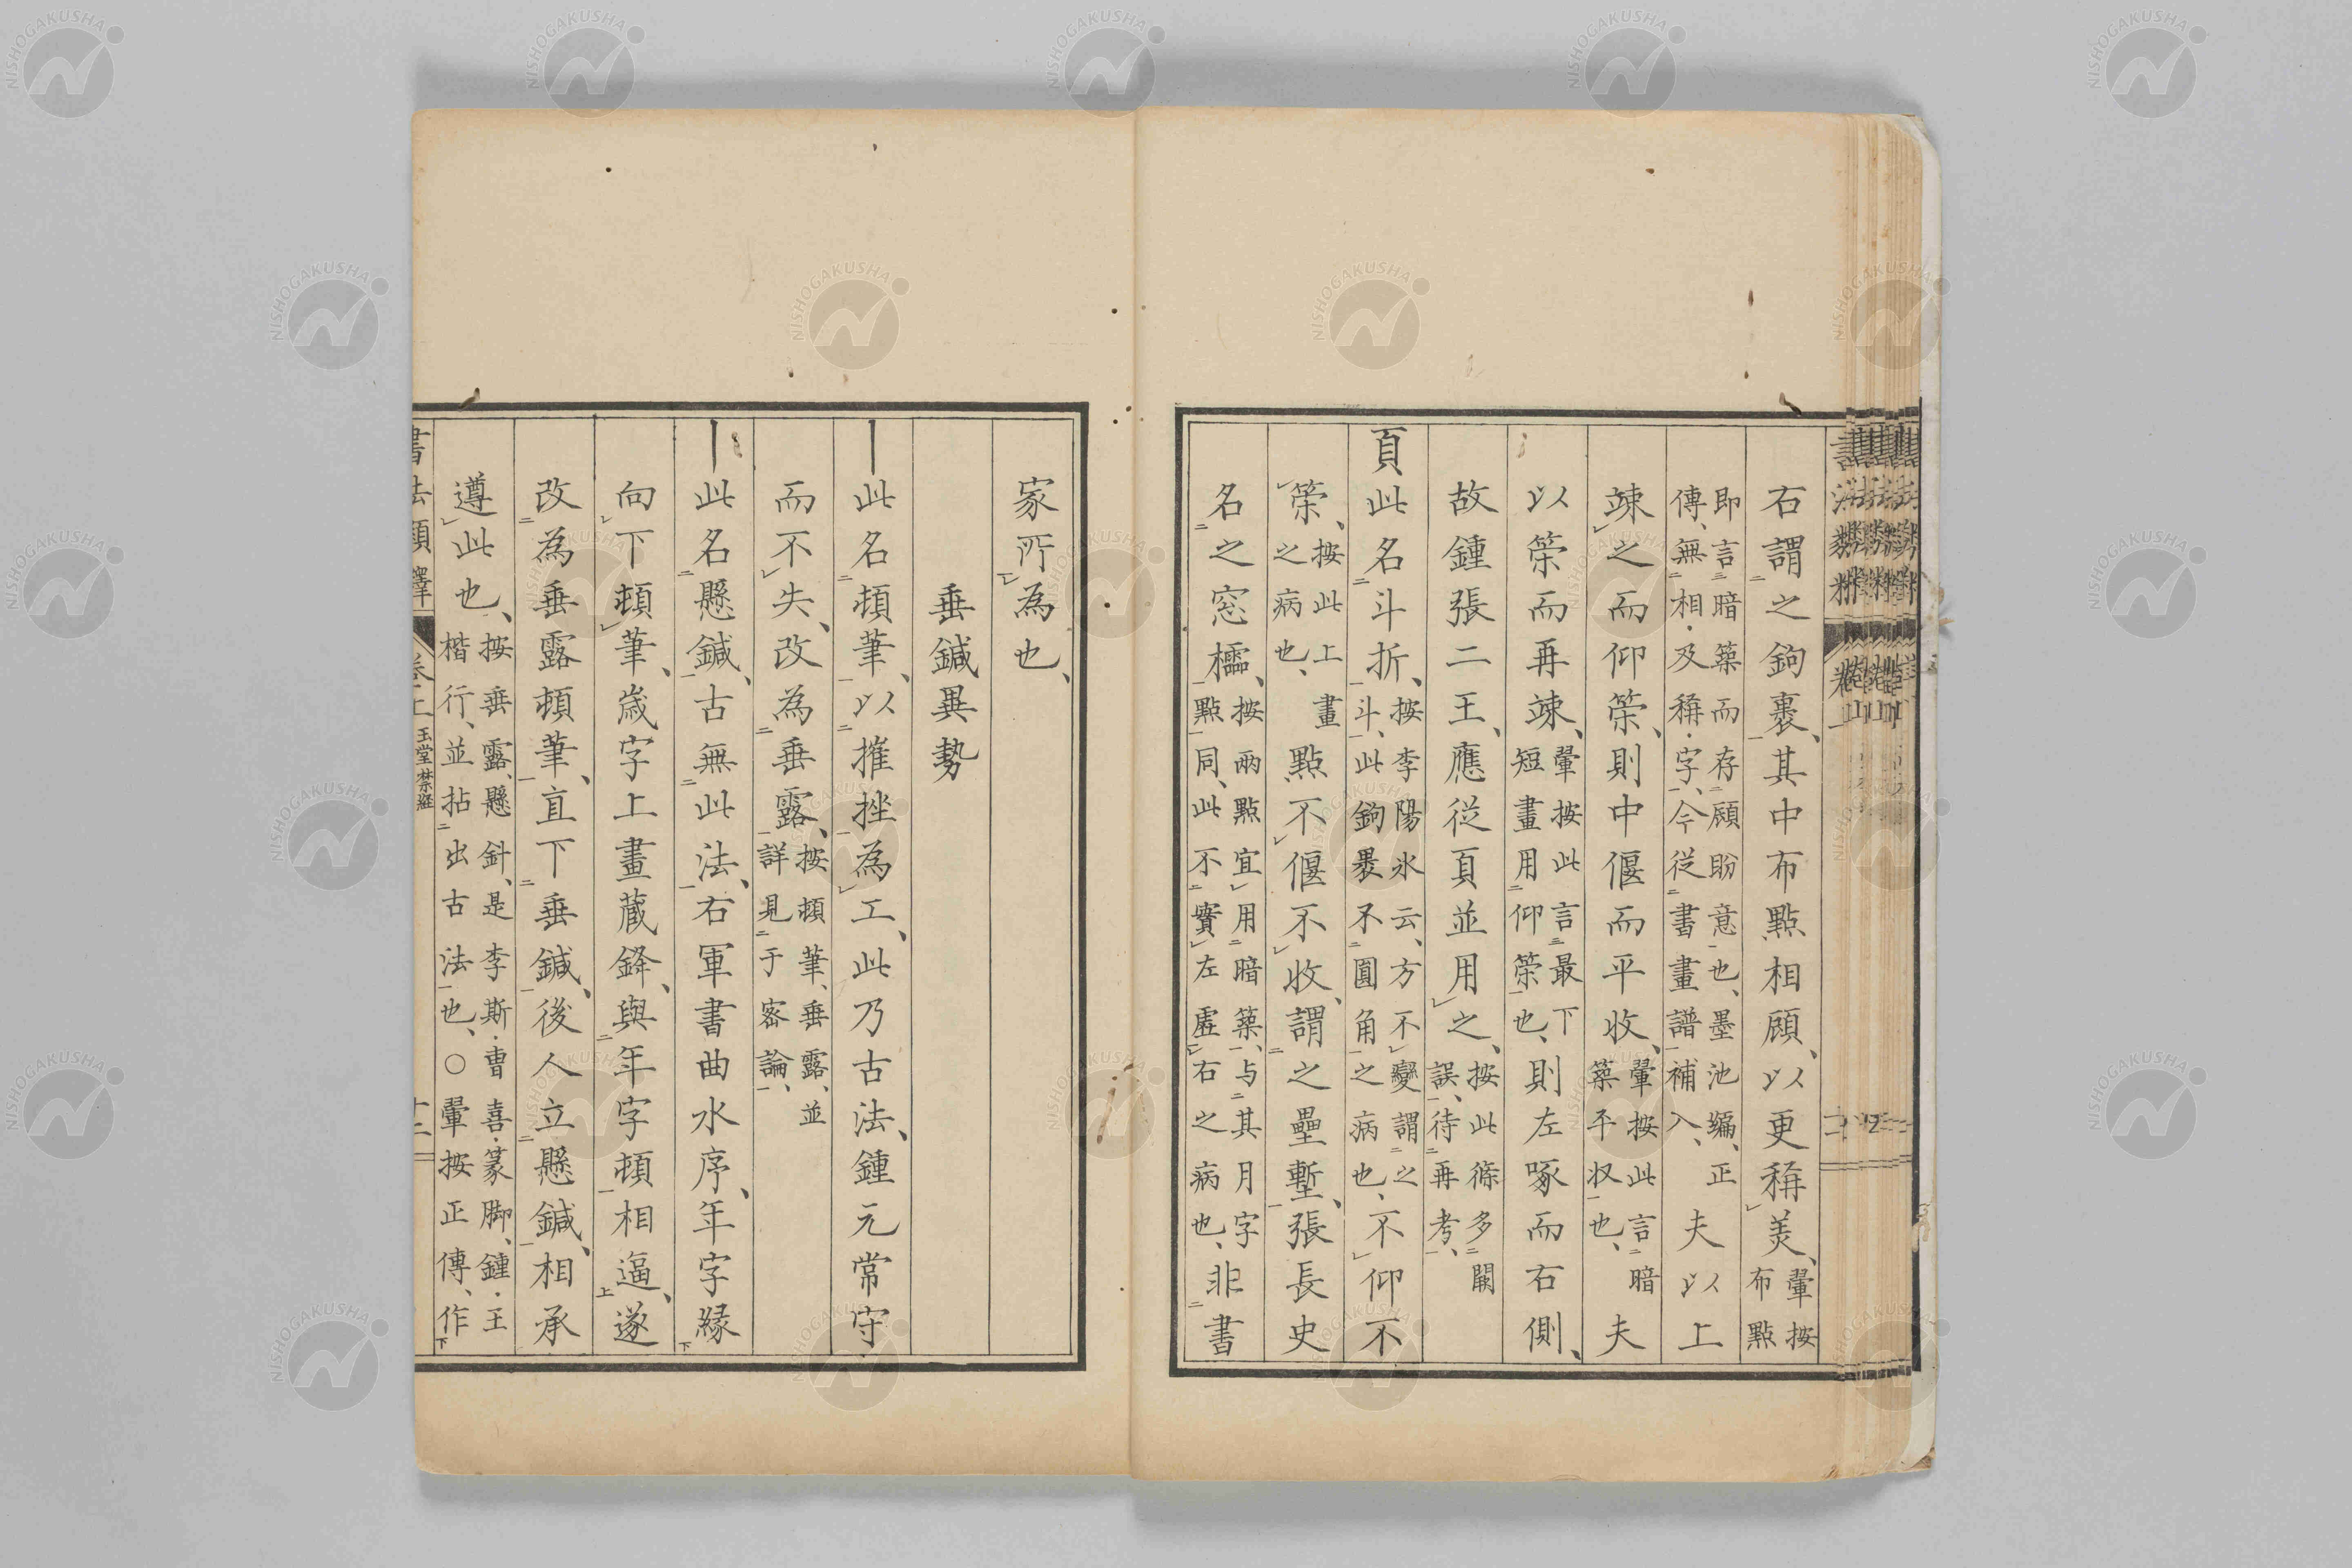 右謂之鉤裹、其中布點相顧、以更稱美、鞏按布點
即言暗築而存顧盼意也、墨池編、正傳、無相及稱字、今從書畫譜補入、夫以上
竦之而仰筞、則中偃而平收、鞏按此言暗築平収也、夫
以筞而再竦、鞏按此言最下短畫用仰筞也、則左啄而右側、
故鍾張二王、應從頁並用之、按此條多闕誤、待再考、
頁此名斗折、按李陽氷云、方不變謂之斗、此鉤裹不圓角之病也、不仰不
筞、按此上畫之病也、點不偃不收、謂之壘塹、張長史
名之窓櫺、按兩點宜用暗築、与其月字點同、此不實左虛右之病也、非書
家所為也、
垂鍼異勢
丨此名頓筆、以摧挫為工、此乃古法、鍾元常守
而不失、改為垂露、按頓筆、垂露、並詳見于密論、
丨此名懸鍼、古無此法、右軍書曲水序、年字縁
向下頓筆、歳字上畫蔵鋒、與年字頓相逼、遂
改為垂露頓筆、直下垂鍼、後人立懸鍼、相承
遵此也、按垂露、懸針、是李斯・曹喜・篆脚、鍾・王楷行、並拈出古法也、○鞏按正傳、作
書法類釋 卷上 玉堂禁経 十二
NISHOGAKUSHA